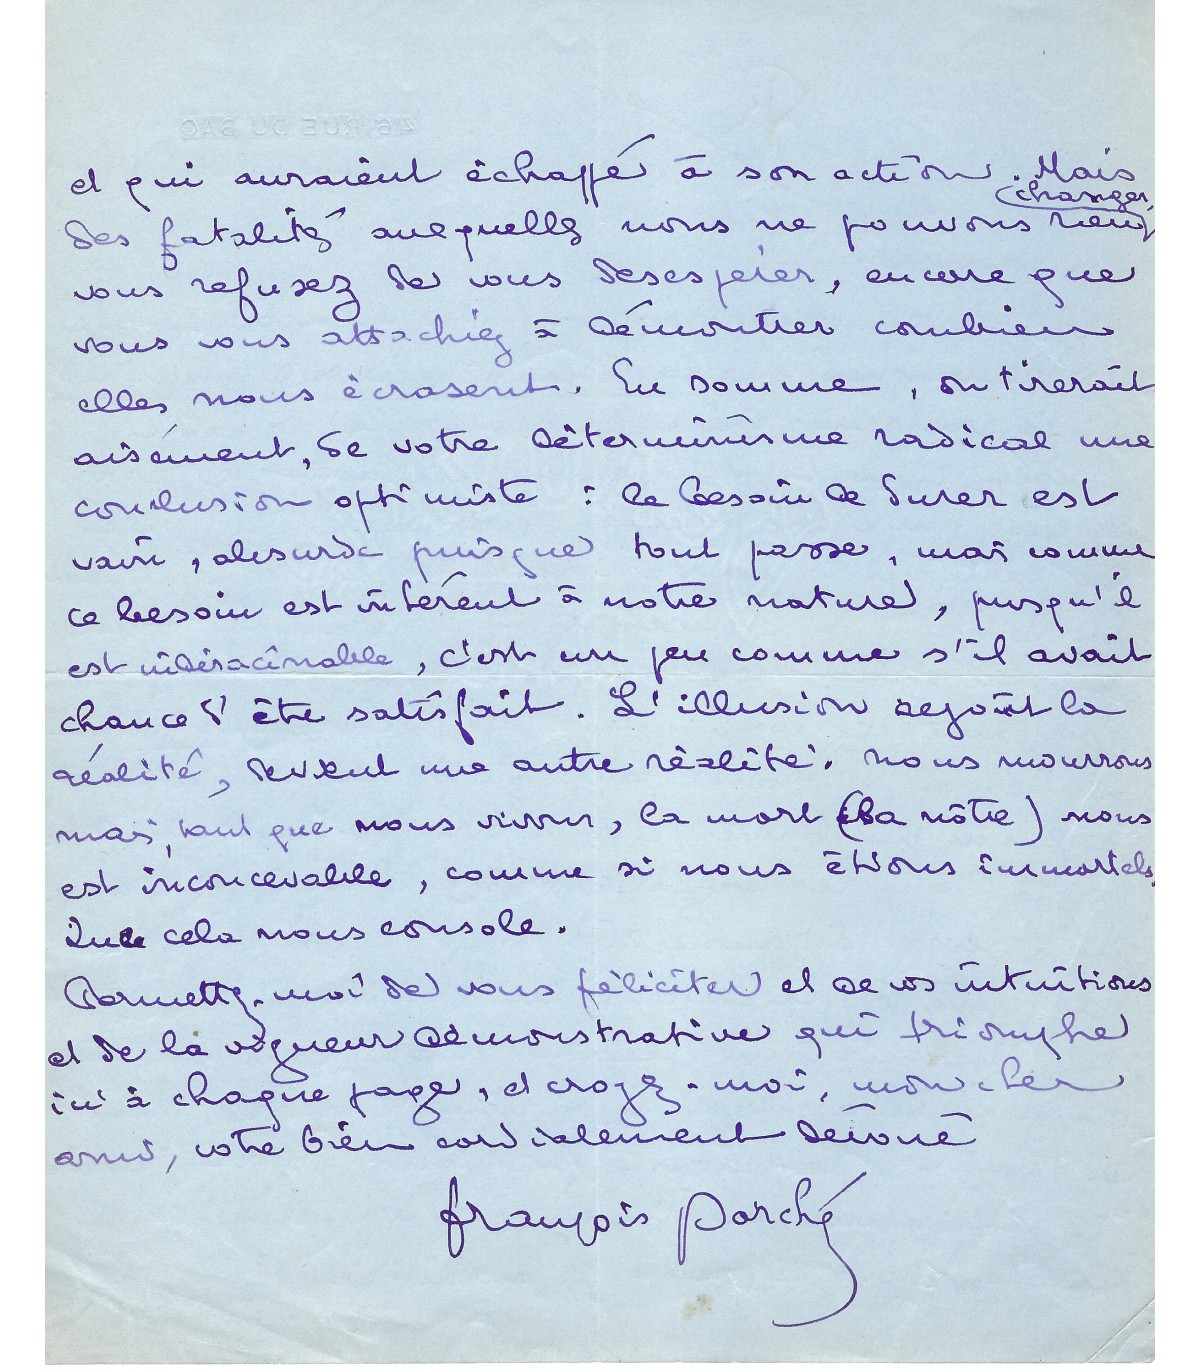 46 RUE DU BAC
et qui auraient échappé à son action. Mais
changer,
des fatalités auxquelles nous ne pouvons rien
vous refusez de vous desespérer, encore que
vous vous attachiez à démontrer combien
elles nous écrasent. En somme, on tirerait
aisément, de votre déterminisme radical une
conclusion optimiste : le besoin de durer est
vain, absurde puisque tout passe, mais comme
ce besoin est inhérent à notre nature, puisqu'il
est indéracinable, c'est un peu comme s'il avait
chance d'être satisfait. L'illusion rejoint la
réalité, devient une autre réalité. Nous mourrons
mais, tant que nous vivons, la mort (la nôtre) nous
est inconcevable, comme si nous étions immortels.
Que cela nous console.
Permettez-moi de vous féliciter et de vos intuitions
et de la vigueur démonstrative qui triomphe
ici à chaque page, et croyez-moi, mon cher
ami, votre bien cordialement dévoué
François Porché